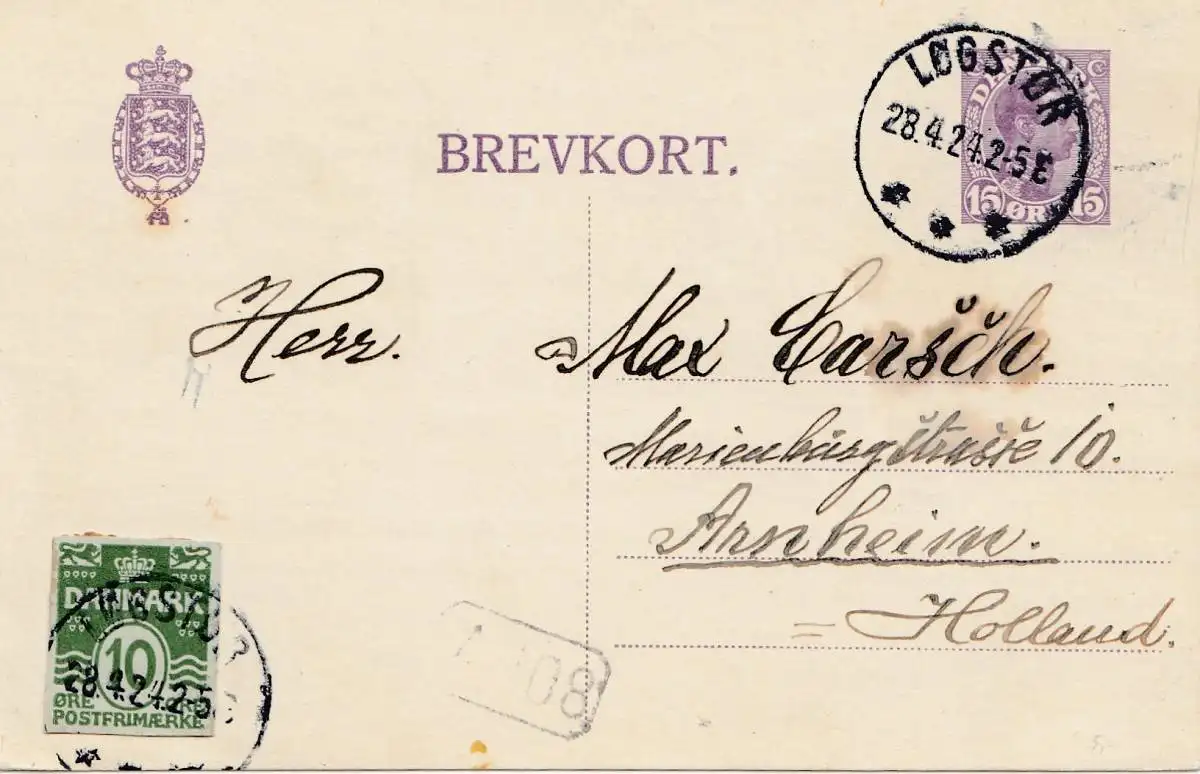 BREVKORT.
LØGSTØR
28.4.24.2-5E
15 ØRE 15
Herr. Max Carsch.
Marienburgstrasse 10.
Arnheim.
= Holland.
DANMARK
10
ØRE ØRE
POSTFRIMÆRKE
LØGSTØR
28.4.24.2-5
08